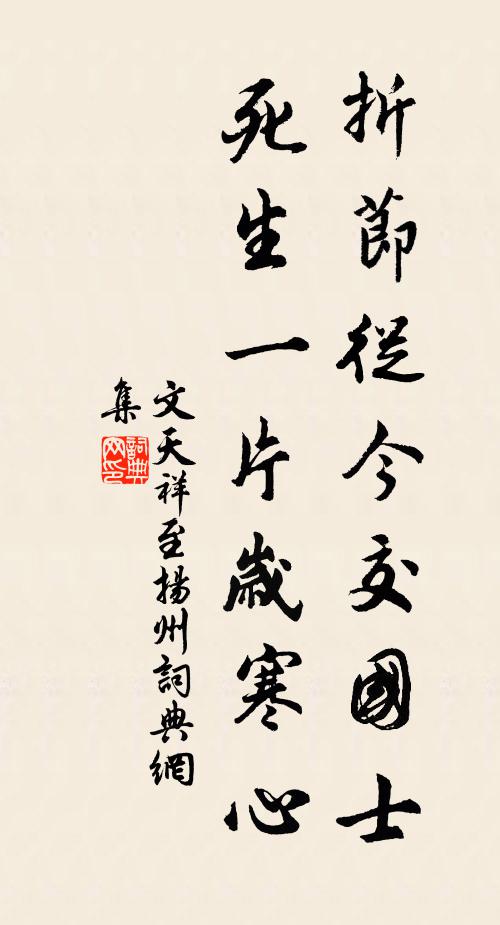 折節從今交國士
死生一片歲寒心
文天祥至揚州詞典網
集
詞典網印